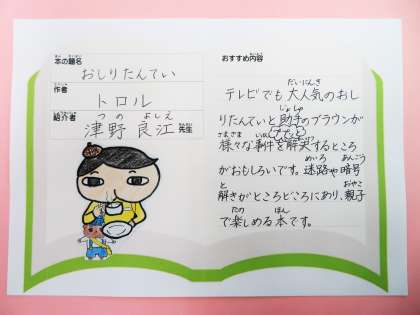 本の題名
おしりたんてい
作者
トロル
紹介者
津野 良江 先生
おすすめ内容
テレビでも大人気のおし
りたんていと助手のブラウンが
様々な事件を解決するところ
がおもしろいです。迷路や暗号
解きがところどころにあり、親子
で楽しめる本です。